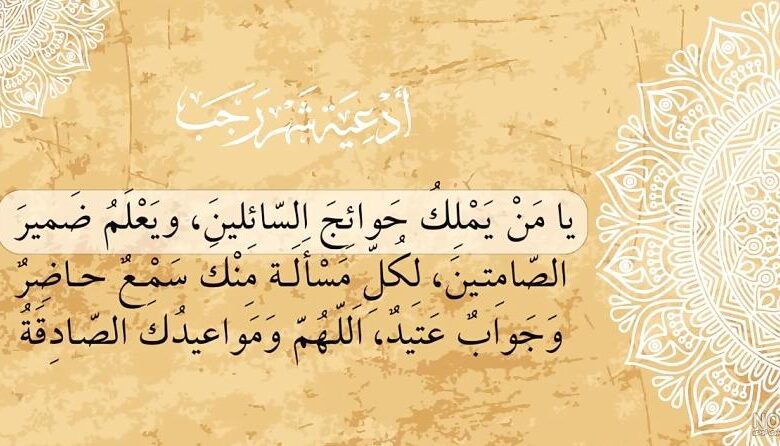 أَدْعِيَة شَهْر رَجَب
يا مَنْ يَمْلِكُ حَوائِجَ السّائِلينَ، ويَعْلَمُ ضَميرَ
الصّامِتينَ، لِكُلِّ مَسْأَلَـة مِنْك سَمْـعٌ حـاضِـرٌ
وَجَوابٌ عَتِيدٌ، اَللّـهُمّ وَمَواعيدُك الصّادِقَةُ